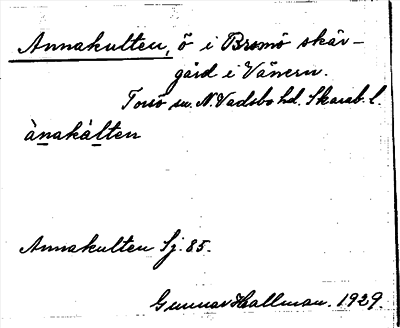 Annakulten, ö i Bromö skär-
gård i Vänern.
Torsö sn. N. Vadsbo hd. Skarab. l.
ànakàlten
Annakulten Sj. 85.
Gunnar Hallman. 1929.